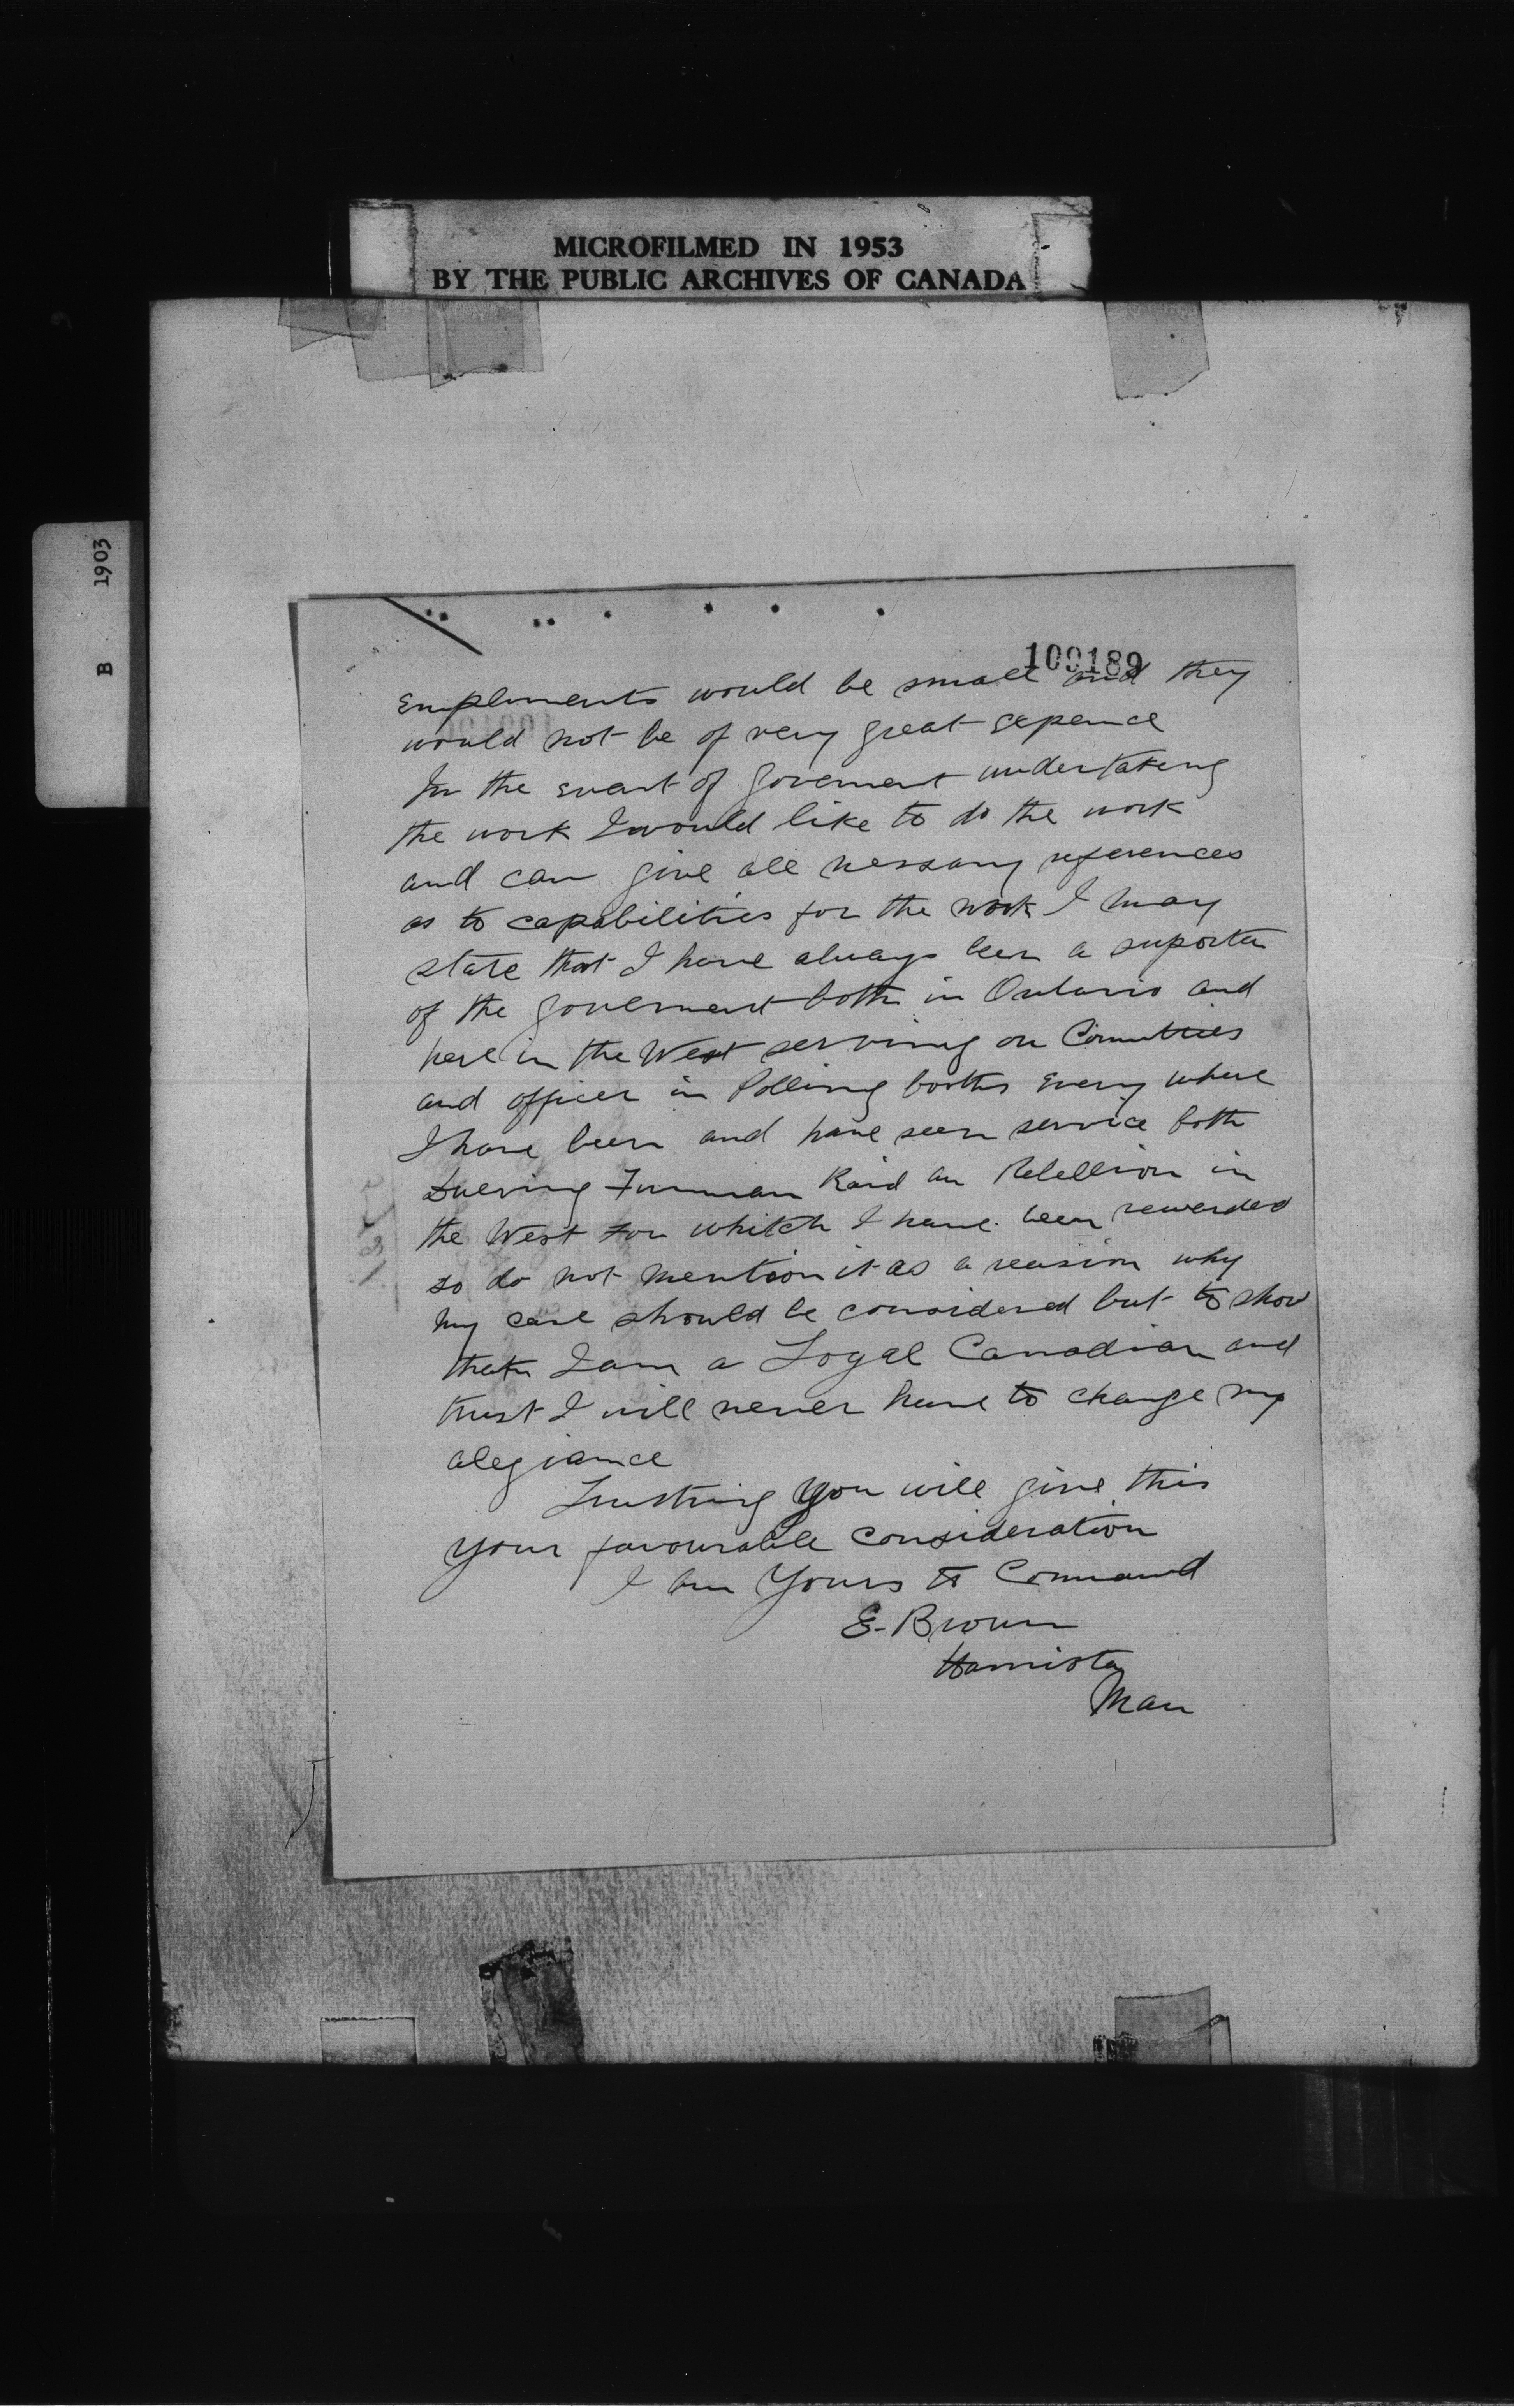 MICROFILMED IN 1953
BY THE PUBLIC ARCHIVES OF CANADA
B 1903
109189
Empliments would be small and they
would not be of very great expence
In the event of Goverment undertaking
the work I would like to do the work
and can give all nessary references
as to capabilities for the work I may
state that I have always been a suporter
of the Goverment both in Ontario and
here in the West serving on Committies
and officer in Polling booths every where
I have been and have seen service both
Duering Raid an Rebellion in
the West for whitch I have been rewerded
so do not mention it as a reasion why
my case should be considered but to show
that I am a Loyal Canadian and
trust I will never have to change my
alegiance
Trusting you will give this
your favourable consideration
I am Yours to Command
E. Brown
Hamiota
Man